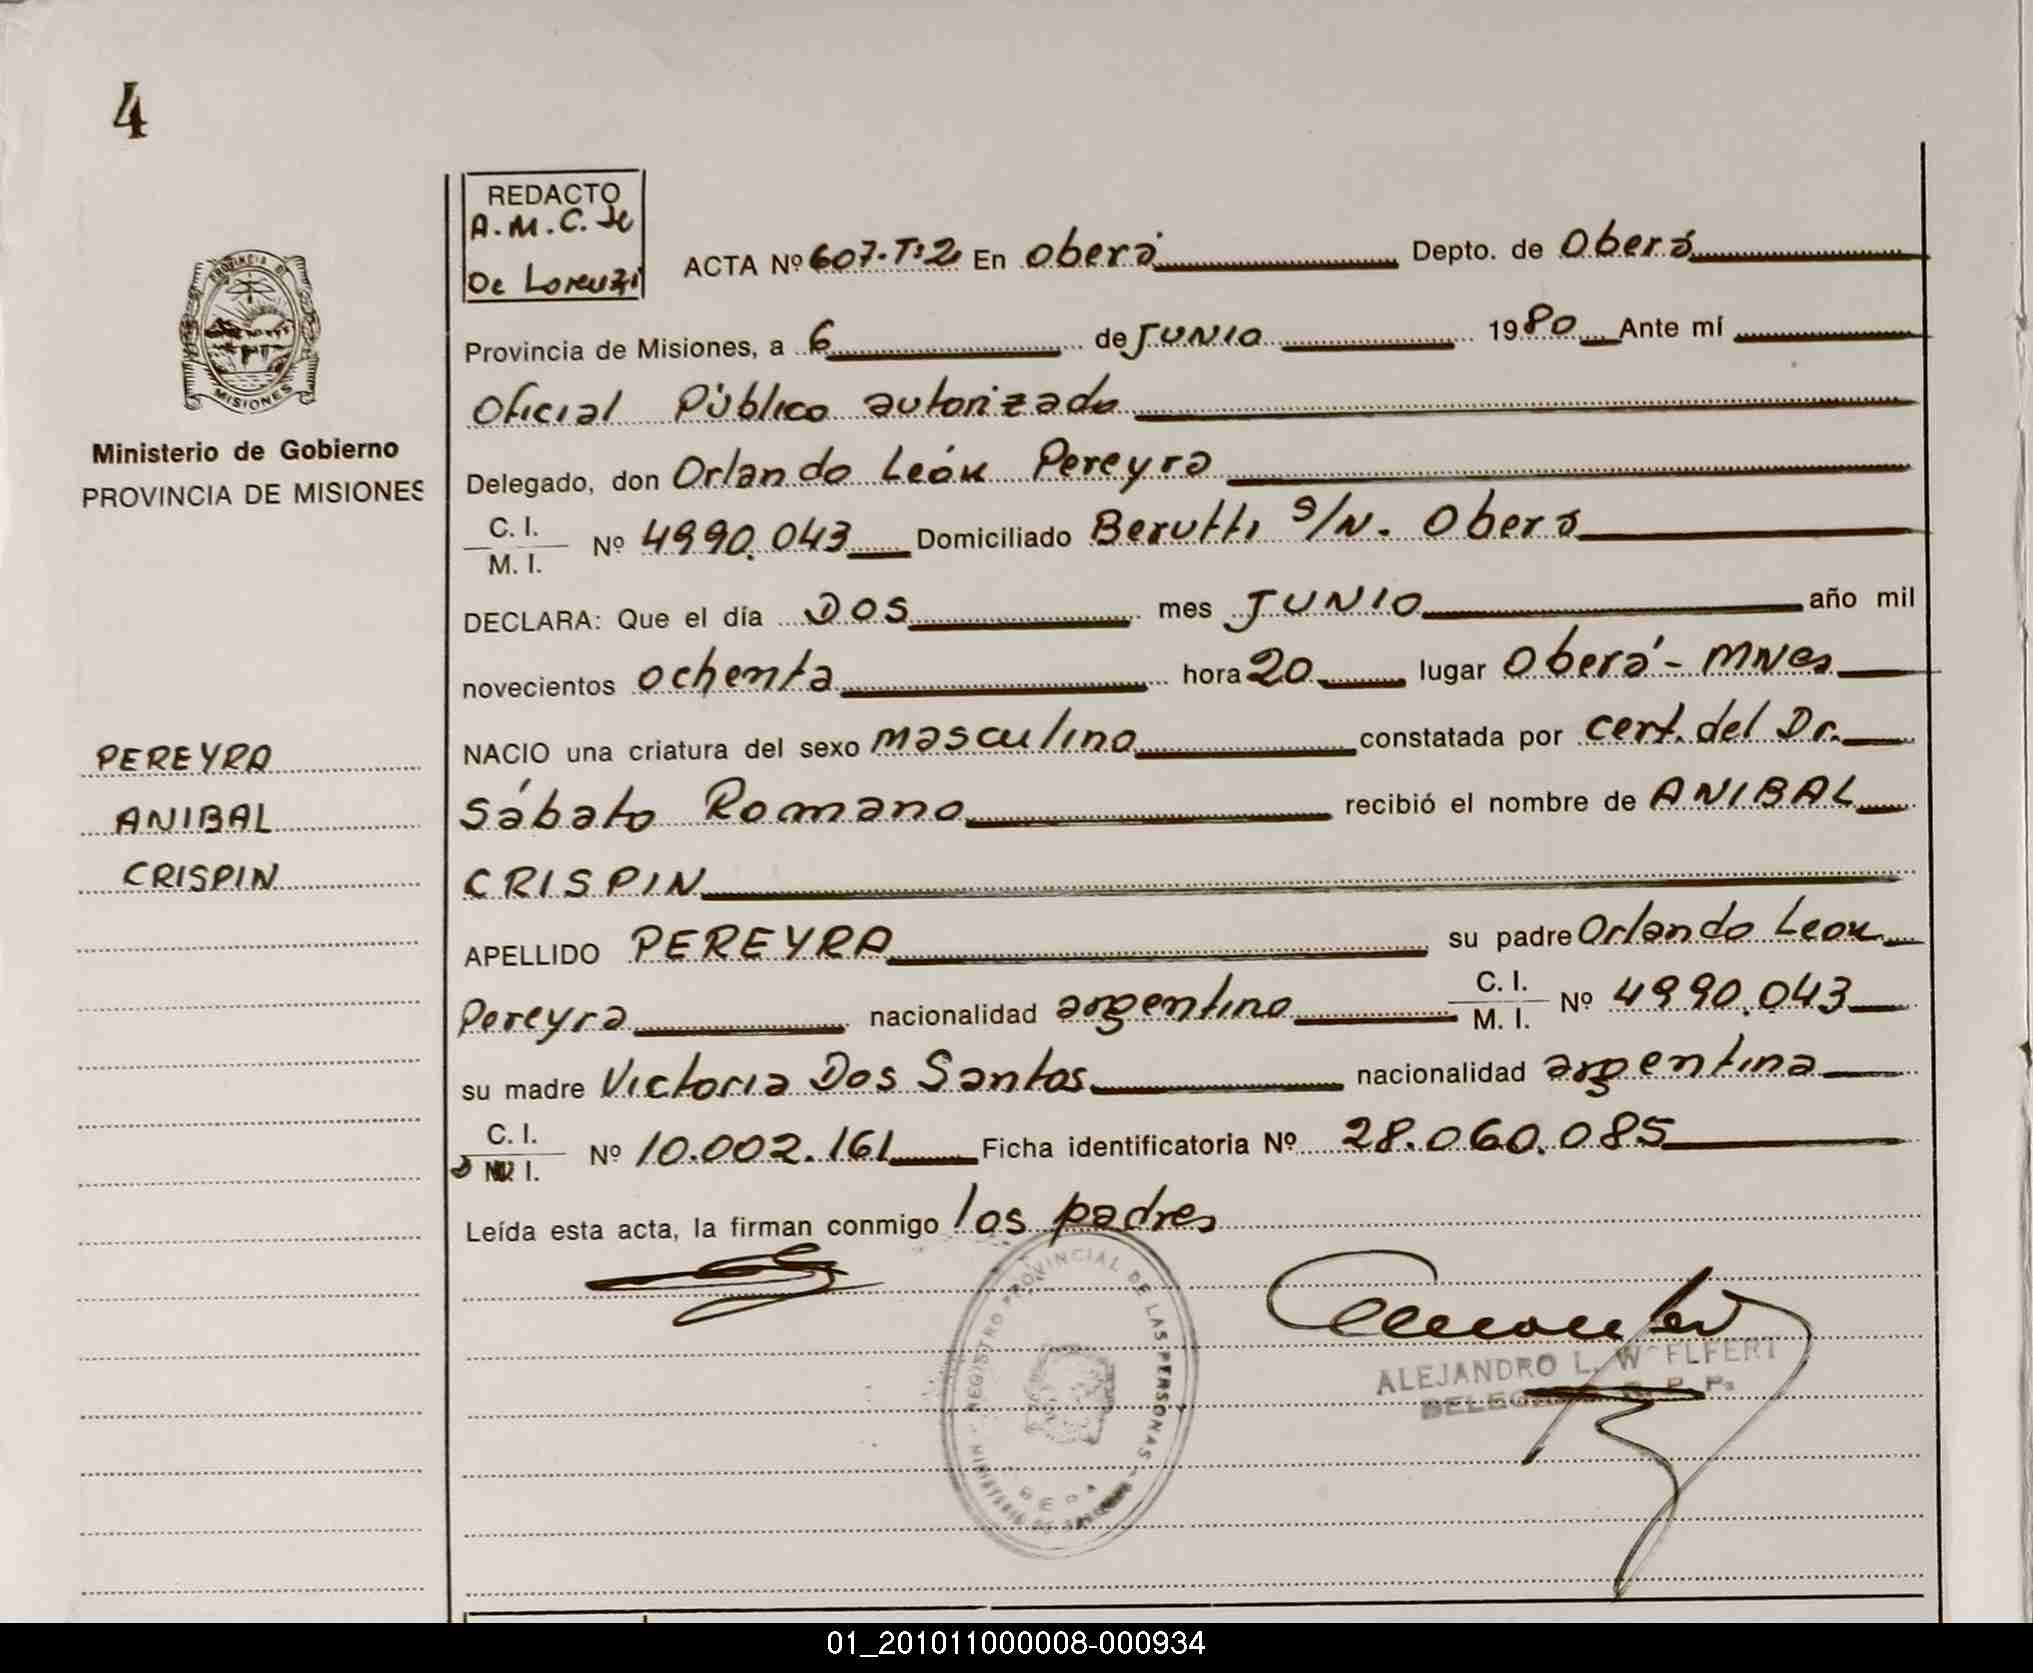 4
REDACTO
A.M.C. de
De Lorenzi
PROVINCIA DE
MISIONES
Ministerio de Gobierno
PROVINCIA DE MISIONES
ACTA Nº 607-T:2 En Oberá Depto. de Oberá
Provincia de Misiones, a 6 de JUNIO 1980 Ante mí
Oficial Público autorizado
Delegado, don Orlando León Pereyra
C. I.
M. I. Nº 4990.043 Domiciliado Berutti s/N. Oberá
DECLARA: Que el día DOS mes JUNIO año mil
novecientos ochenta hora 20 lugar Oberá - MNes
PEREYRA
ANIBAL
CRISPIN
NACIO una criatura del sexo masculino constatada por cert. del Dr.
Sábato Romano recibió el nombre de ANIBAL
CRISPIN
APELLIDO PEREYRA su padre Orlando Leon
Pereyra nacionalidad argentino C. I. M. I. Nº 4990.043
su madre Victoria Dos Santos nacionalidad argentina
C. I.
I. Nº 10.002.161 Ficha identificatoria Nº 28.060.085
Leída esta acta, la firman conmigo los padres
REGISTRO PROVINCIAL DE LAS PERSONAS - MINISTERIO DE
ALEJANDRO L. WOELFERT
DELEGADO R. P. P.
01_201011000008-000934